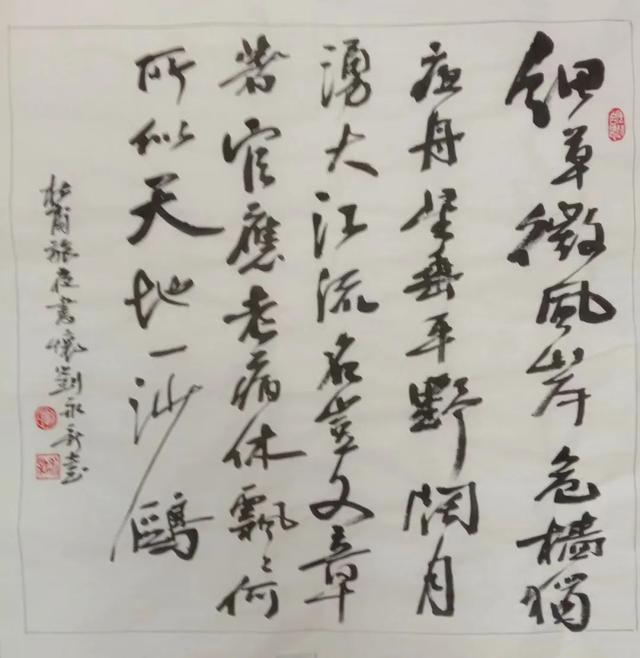 細草微風岸危檣獨
夜舟星垂平野闊月
湧大江流名豈文章
著官應老病休飄〻何
所似天地一沙鷗
杜甫旅夜書懷劉永